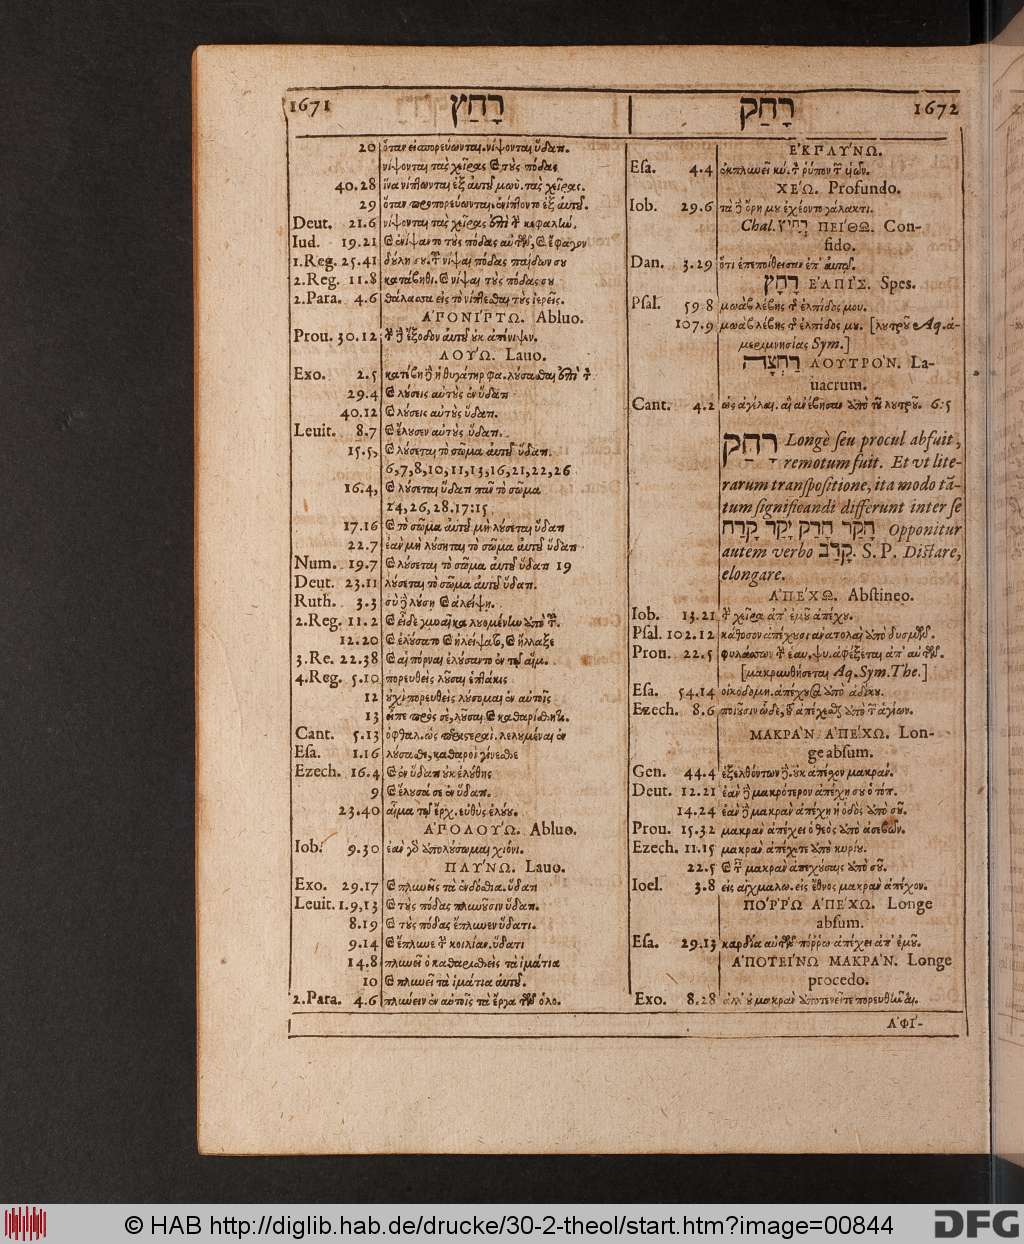 1671 רָחַץ
20 ὅταν εἰσπορεύωνται. νίψονται ὕδατι.
νίψονται τὰς χεῖρας καὶ τοὺς πόδας
40.28 ἵνα νίπτωνται ἐξ αὐτοῦ μωϋ. τὰς χεῖρας.
29 ὅταν προσπορεύωνται. ἐνίπτοντο ἐξ αὐτοῦ.
Deut. 21.6 νίψονται τὰς χεῖρας ἐπὶ τὴν κεφαλὴν.
Iud. 19.21 καὶ ἐνίψαντο τοὺς πόδας αὐτῶν, καὶ ἔφαγον
1.Reg. 25.41 δούλη σου. τοῦ νίψαι πόδας παίδων σου
2.Reg. 11.8 κατάβηθι. καὶ νίψαι τοὺς πόδας σου
2.Para. 4.6 θάλασσα εἰς τὸ νίπτεσθαι τοὺς ἱερεῖς.
ἈΠΟΝΊΠΤΩ. Abluo.
Prou. 30.12 τὴν δὲ ἔξοδον αὐτοῦ οὐκ ἀπένιψεν.
ΛΟΎΩ. Lauo.
Exo. 2.5 κατέβη δὲ ἡ θυγάτηρ φα. λούσασθαι ἐπὶ τὸν
29.4 καὶ λούσεις αὐτοὺς ἐν ὕδατι
40.12 καὶ λούσεις αὐτοὺς ὕδατι.
Leuit. 8.7 καὶ ἔλουσεν αὐτοὺς ὕδατι.
15.5, καὶ λούσεται τὸ σῶμα αὐτοῦ ὕδατι.
6,7,8,10,11,13,16,21,22,26
16.4, καὶ λούσεται ὕδατι πᾶν τὸ σῶμα
24,26,28.17:15
17.16 καὶ τὸ σῶμα αὐτοῦ μὴ λούσεται ὕδατι
22.7 ἐὰν μὴ λούσηται τὸ σῶμα αὐτοῦ ὕδατι
Num. 19.7 καὶ λούσεται τὸ σῶμα αὐτοῦ ὕδατι 19
Deut. 23.11 λούσεται τὸ σῶμα αὐτοῦ ὕδατι.
Ruth. 3.3 σὺ δὲ λούσῃ καὶ ἀλείψῃ.
2.Reg. 11.2 καὶ εἶδε γυναῖκα λουομένην ἀπὸ τοῦ.
12.20 καὶ ἐλούσατο καὶ ἠλείψατο, καὶ ἤλλαξε
3.Re. 22.38 καὶ αἱ πόρναι ἐλούσαντο ἐν τῷ αἵμ.
4.Reg. 5.10 πορευθεὶς λοῦσαι ἑπτάκις
12 οὐχὶ πορευθεὶς λούσομαι ἐν αὐτοῖς
13 εἶπε πρὸς σὲ, λοῦσαι καὶ καθαρίσθητι.
Cant. 5.13 ὀφθαλ. ὡς περιστεραὶ. λελουμέναι ἐν
Esa. 1.16 λούσασθε, καθαροὶ γίνεσθε
Ezech. 16.4 καὶ ἐν ὕδατι οὐκ ἐλούθης
9 καὶ ἔλουσά σε ἐν ὕδατι.
23.40 ἅμα τῷ ἔρχ. εὐθὺς ἐλούου.
ἈΠΟΛΟΎΩ. Abluo.
Iob. 9.30 ἐὰν γὸ ἀπολούσωμαι χιόνι.
ΠΛΎΝΩ. Lauo.
Exo. 29.17 καὶ πλυνεῖς τὰ ἐνδόσθια. ὕδατι
Leuit. 1.9,13 καὶ τοὺς πόδας πλυνοῦσιν ὕδατι.
8.19 καὶ τοὺς πόδας ἔπλυνεν ὕδατι.
9.14 καὶ ἔπλυνε τὴν κοιλίαν. ὕδατι
14.8 πλυνεῖ ὁ καθαρισθεὶς τὰ ἱμάτια
10 καὶ πλυνεῖ τὰ ἱμάτια αὐτοῦ.
2.Para. 4.6 πλύνειν ἐν αὐτοῖς τὰ ἔργα τῶν ὁλο.
רָחַק 1672
ἘΚΠΛΎΝΩ.
Esa. 4.4 ἐκπλυνεῖ κύ. τὸν ῥύπον τῶν υἱῶν.
ΧΈΩ. Profundo.
Iob. 29.6 τὰ δὲ ὄρη μου ἐχέοντο γάλακτι.
Chal. רְחִיץ ΠΕΊΘΩ. Con-
fido.
Dan. 3.29 ὅτι ἐπεποίθεισαν ἐπ' αὐτῷ.
רָחַץ ἘΛΠΊΣ. Spes.
Psal. 59 8 μωὰβ λέβης τῆς ἐλπίδος μου.
107.9 μωὰβ λέβης τῆς ἐλπίδος μου. [λουτροῦ Aq. ἀ-
μεριμνησίας Sym.]
רַחְצָה ΛΟΥΤΡΌΝ. La-
uacrum.
Cant. 4.2 ὡς ἀγέλαι. αἳ ἀνέβησαν ἀπὸ τοῦ λουτροῦ. 6:5
רָחַק Longè seu procul abfuit,
remotum fuit. Et vt lite-
rarum transpositione, ita modo tā-
tum significandi differunt inter se
חָקַר חָרַק יָקַר קָרַח Opponitur
autem verbo קָרַב. S. P. Distare,
elongare.
ἈΠΈΧΩ. Abstineo.
Iob. 13.21 τὴν χεῖρα ἀπ' ἐμοῦ ἀπέχου.
Psal. 102.12 καθόσον ἀπέχουσι ἀνατολαὶ ἀπὸ δυσμῶν.
Prou. 22.5 φυλάσσων τὴν ἑαυ. ψυ. ἀφέξεται ἀπ' αὐτῶν.
[μακρυνθήσεται Aq. Sym. The.]
Esa. 54.14 οἰκοδομη. ἀπέχου ἀπὸ ἀδίκου.
Ezech. 8.6 ποιοῦσιν ὧδε, τοῦ ἀπέχεσθαι ἀπὸ τῶν ἁγίων.
ΜΑΚΡᾺΝ ἈΠΈΧΩ. Lon-
ge absum.
Gen. 44.4 ἐξελθόντων δὲ. οὐκ ἀπέσχον μακράν.
Deut. 12.21 ἐὰν δὲ μακρότερον ἀπέχῃ σου ὁ τόπ.
14.24 ἐὰν δὲ μακρὰν ἀπέχῃ ἡ ὁδὸς ἀπὸ σοῦ.
Prou. 15.32 μακρὰν ἀπέχει ὁ θεὸς ἀπὸ ἀσεβῶν.
Ezech. 11.15 μακρὰν ἀπέχετε ἀπὸ κυρίου.
22.5 καὶ ταῖς μακρὰν ἀπεχούσαις ἀπὸ σοῦ.
Ioel. 3.8 εἰς αἰχμαλω. εἰς ἔθνος μακρὰν ἀπέχον.
ΠΌΡΡΩ ἈΠΈΧΩ. Longe
absum.
Esa. 29.13 καρδία αὐτῶν πόρρω ἀπέχει ἀπ' ἐμοῦ.
ἈΠΟΤΕΊΝΩ ΜΑΚΡᾺΝ. Longe
procedo.
Exo. 8.28 ἀλλ' οὐ μακρὰν ἀποτενεῖτε πορευθῆναι.
ἈΦΊ-
© HAB http://diglib.hab.de/drucke/30-2-theol/start.htm?image=00844
DFG